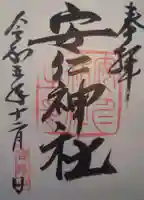 奉拝
安仁神社
令和五年十二月 日